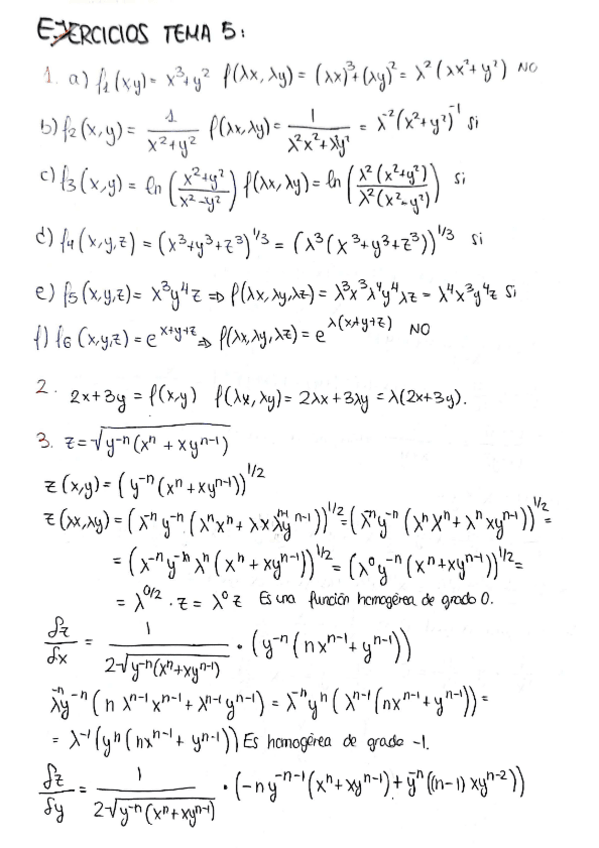 EJERCICIOS TEMA 5:
1. a) f₁(x,y)= x³+y² f(λx, λy) = (λx)³+(λy)² = λ²(λx²+y²) NO
b) f₂(x,y) = 1/(x²+y²) f(λx,λy) = 1/(λ²x²+λ²y²) = λ⁻²(x²+y²)⁻¹ Si
c) f₃(x,y) = ln((x²+y²)/(x²-y²)) f(λx, λy) = ln((λ²(x²+y²))/(λ²(x²-y²))) Si
d) f₄(x,y,z) = (x³+y³+z³)^(1/3) = (λ³(x³+y³+z³))^(1/3) Si
e) f₅(x,y,z) = x³y⁴z ⇒ f(λx, λy, λz) = λ³x³λ⁴y⁴λz = λ⁴x³y⁴z Si
f) f₆(x,y,z) = e^(x+y+z) ⇒ f(λx, λy, λz) = e^(λ(x+y+z)) NO
2. 2x+3y = f(x,y) f(λx, λy) = 2λx+3λy = λ(2x+3y).
3. z = √(y⁻ⁿ(xⁿ + xyⁿ⁻¹))
z(x,y) = (y⁻ⁿ(xⁿ + xyⁿ⁻¹))^(1/2)
z(λx,λy) = (λ⁻ⁿy⁻ⁿ(λⁿxⁿ + λxλⁿ⁻¹yⁿ⁻¹))^(1/2) = (λ⁻ⁿy⁻ⁿ(λⁿxⁿ + λⁿxyⁿ⁻¹))^(1/2) =
= (λ⁻ⁿy⁻ⁿλⁿ(xⁿ + xyⁿ⁻¹))^(1/2) = (λ⁰y⁻ⁿ(xⁿ+xyⁿ⁻¹))^(1/2) =
= λ^(0/2) · z = λ⁰z Es una función homogénea de grado 0.
δz/δx = 1/(2√(y⁻ⁿ(xⁿ+xyⁿ⁻¹))) · (y⁻ⁿ(nxⁿ⁻¹+yⁿ⁻¹))
λ⁻ⁿy⁻ⁿ(nλⁿ⁻¹xⁿ⁻¹ + λⁿ⁻¹yⁿ⁻¹) = λ⁻ⁿyⁿ(λⁿ⁻¹(nxⁿ⁻¹+yⁿ⁻¹)) =
= λ⁻¹(yⁿ(nxⁿ⁻¹+yⁿ⁻¹)) Es homogénea de grado -1.
δz/δy = 1/(2√(y⁻ⁿ(xⁿ+xyⁿ⁻¹))) · (-ny⁻ⁿ⁻¹(xⁿ+xyⁿ⁻¹)+y⁻ⁿ((n-1)xyⁿ⁻²))